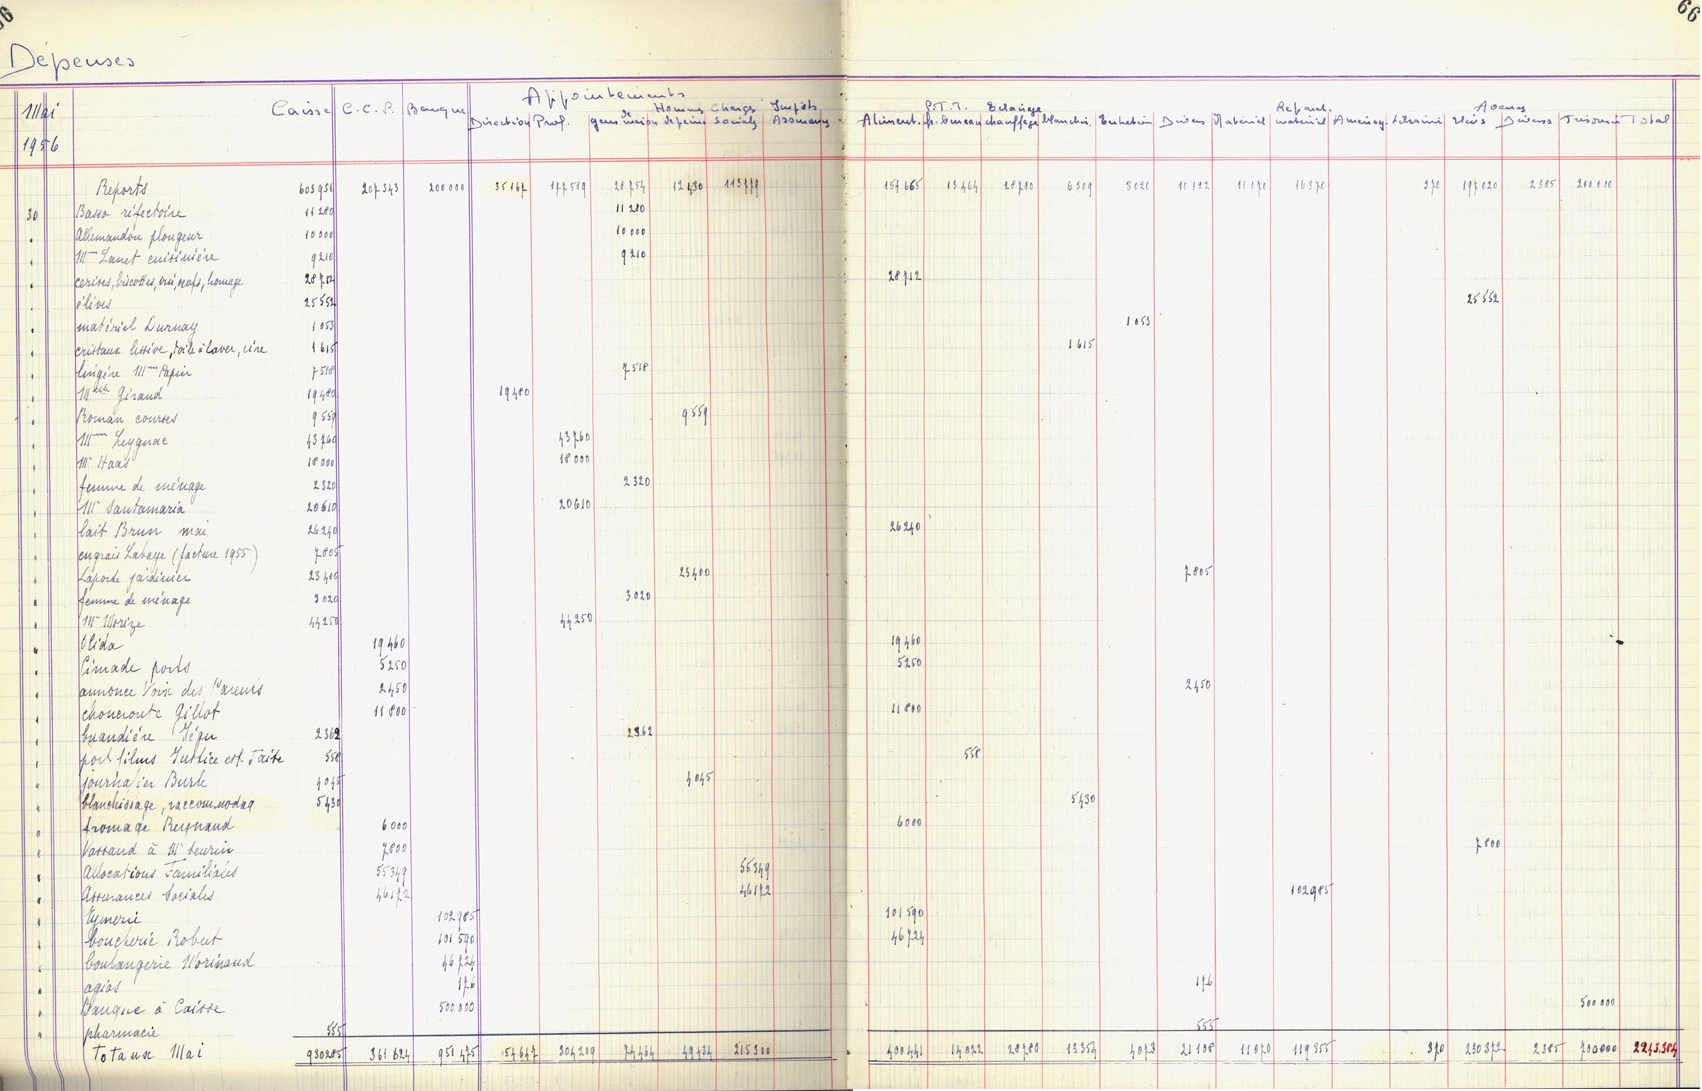 66
66
Dépenses
Mai
1956
Caisse C.C.P. Banque Appointements
Direction Prof. gens de maison Hommes de peine Charges sociales Impôts Assurances
Aliment. P.T.T. fr. bureau Eclairage chauffage blanchis. Entretien Divers Matériel Réparat. matériel Aménag. Librairie Avances Elèves Divers Trésorerie Total
Reports 603951 207343 200000 35167 177589 28754 12430 113779 157665 13464 28780 6309 3020 10122 11170 16370 370 197020 2385 200000
30 Basso réfectoire 11280 11280
Allemandou plongeur 10000 10000
Mme Lanet cuisinière 9210 9210
cerises, biscottes, oeufs, fromage 28712 28712
élèves 25552 25552
matériel Durnay 1053 1053
cristaux lessive, toile à laver, cire 1615 1615
lingère Mme Papin 7518 7518
Mlle Giraud 19480 19480
Roman courses 9559 9559
Mme Leygnac 43760 43760
Mr Haas 18000 18000
femme de ménage 2320 2320
Mr Santamaria 20610 20610
lait Brun mai 26240 26240
engrais Labaye (facture 1955) 7805
Laporte jardinier 23400 23400 7805
femme de ménage 3020 3020
Mr Morize 44250 44250
Olida 19460 19460
Cimade ports 5250 5250
annonce Voix des Parents 2450 2450
choucroute Gillot 11800 11800
buandière Jégu 2362 2362
port films Justice est Faite 558 558
journalier Burle 4045 4045
blanchissage, raccommodag 5430 5430
fromage Reynaud 6000 6000
Vassaud à Mr Leurin 7800 7800
Allocations Familiales 55349 55349
Assurances Sociales 46172 46172 102985
Eymerie 102985 101590
boucherie Robert 101590 46724
boulangerie Morinaud 46724
agios 176 176
Banque à Caisse 500000 500000
pharmacie 555 555
Totaux Mai 930285 361624 951475 54647 304209 74464 49434 215300 400441 14022 28780 13354 4073 21108 11070 119355 370 230372 2385 700000 2243384